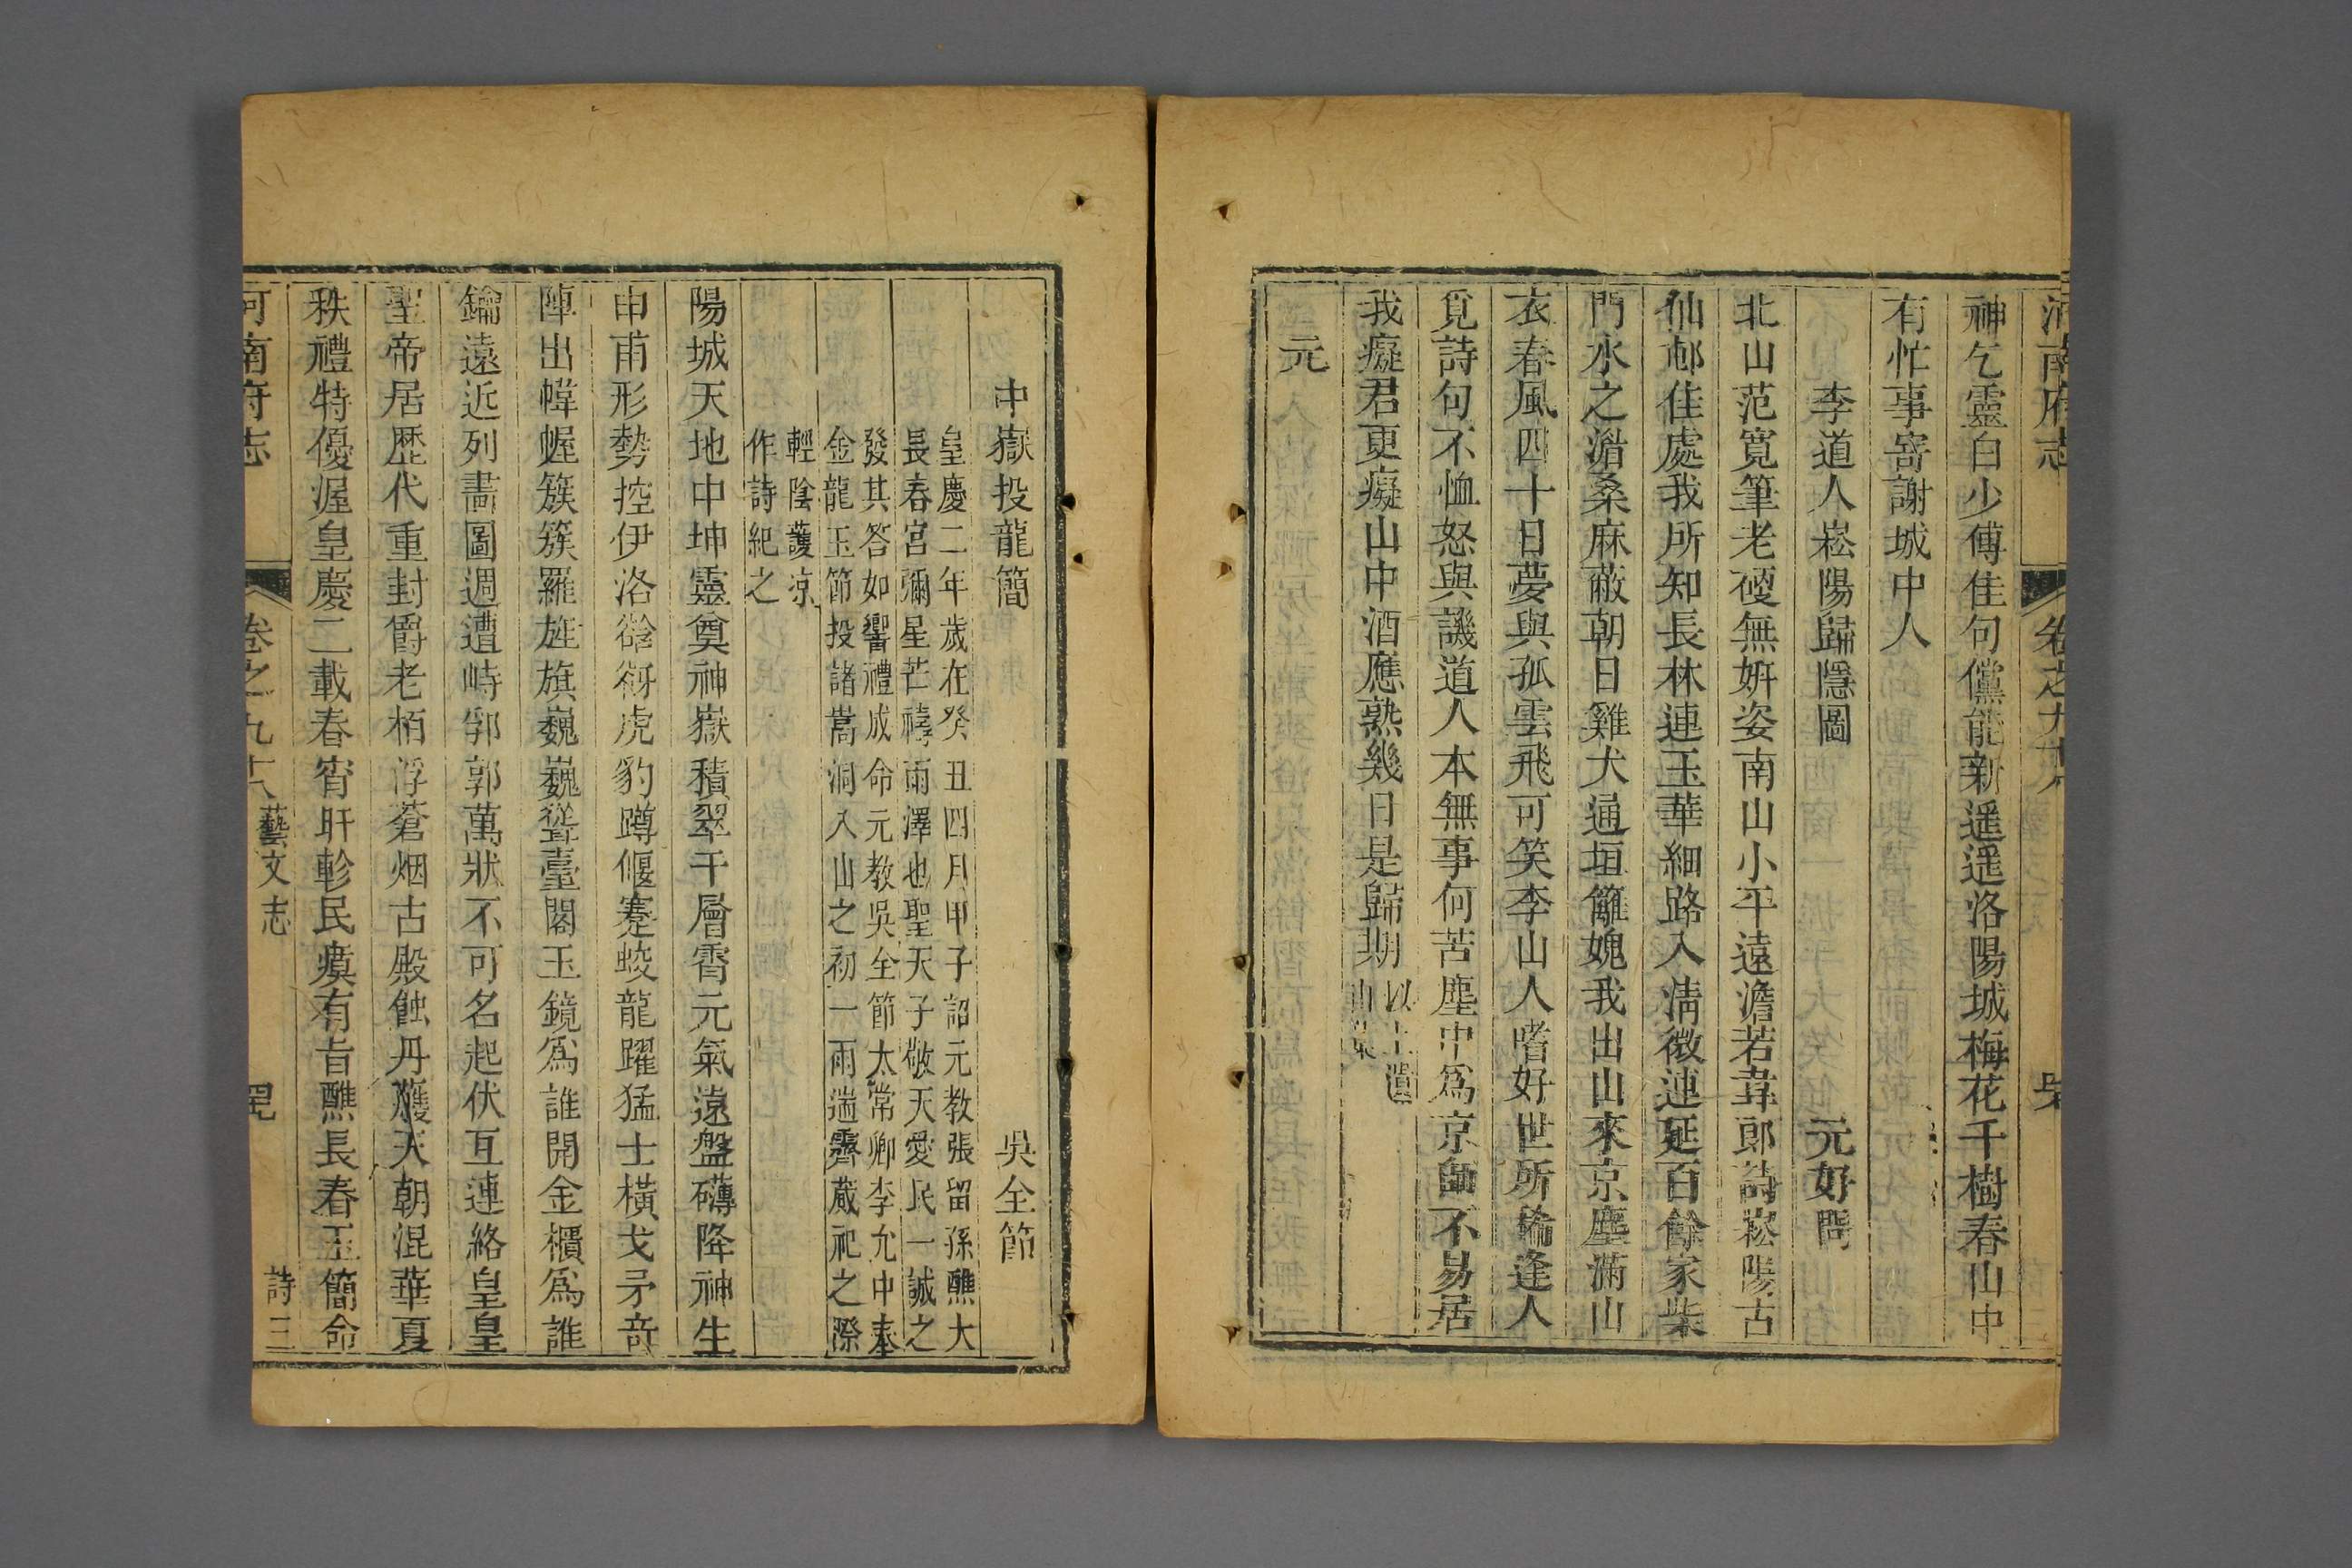 河南府志 卷之九十八
神乞靈白少傅佳句儻能新遥遥洛陽城梅花千樹春山中
有忙事寄謝城中人
李道人崧陽歸隱圖 元好問
北山范寛筆老硬無妍姿南山小平遠澹若韋郎詩崧陽古
仙邨佳處我所知長林連玉華細路入清微連延百餘家柴
門水之湝桑麻蔽朝日雞犬通垣籬媿我出山來京塵滿山
衣春風四十日夢與孤雲飛可笑李山人嗜好世所稀逢人
覓詩句不恤怒與譏道人本無事何苦塵中為京師不易居
我癡君更癡山中酒應熟幾日是歸期 以上遺
山集
元
中嶽投龍簡 吳全節
皇慶二年歲在癸丑四月甲子詔元教張留孫醮大
長春宮彌星芒禱雨澤也聖天子敬天愛民一誠之
發其答如響禮成命元教吳全節太常卿李允中奉
金龍玉節投諸嵩洞入山之初一雨遄霽蕆祀之際
輕陰護凉
作詩紀之
陽城天地中坤靈奠神嶽積翠干層霄元氣遠盤礴降神生
申甫形勢控伊洛谽谺虎豹蹲偃蹇蛟龍躍猛士橫戈矛竒
陣出幃幄簇簇羅旌旗巍巍聳臺閣玉鏡為誰開金櫃為誰
鑰遠近列畵圖週遭峙郛郭萬狀不可名起伏互連絡皇皇
聖帝居歷代重封爵老柏浮蒼烟古殿蝕丹雘天朝混華夏
秩禮特優渥皇慶二載春宵旰軫民瘼有旨醮長春玉簡命
河南府志 卷之九十八 藝文志 詩三